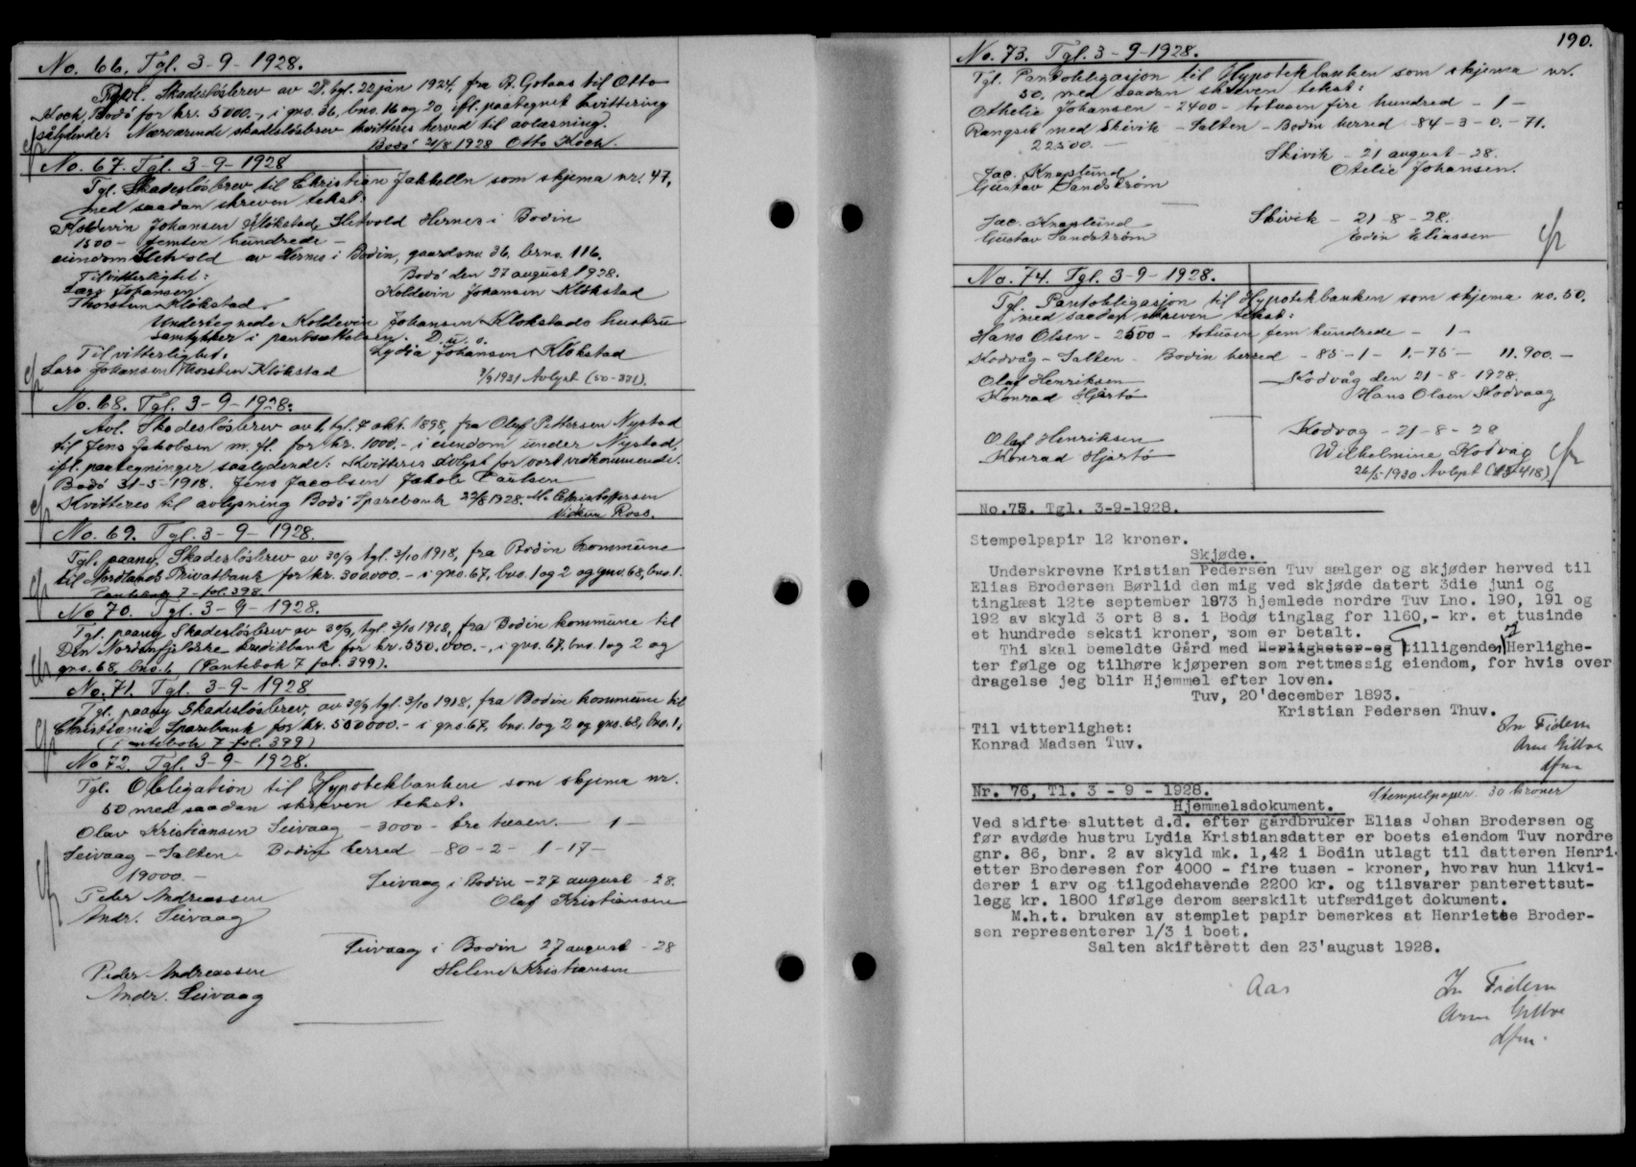 No. 66. Tgl. 3-9-1928.
Avl. Skadesløsbrev av D. tgl. 22 jan 1924, fra R. Gotaas til Otto
Koch, Bodø for kr. 5000.-, i gno. 36, bno. 16 og 20, ifl. paategnet kvittering
sålydende: Nærværende skadesløsbrev kvitteres herved til avlæsning.
Bodø 21/8 1928 Otto Koch.
No. 67. Tgl. 3-9-1928
Tgl. Skadesløsbrev til Christian Jakhelln som skjema nr. 47,
med saadan skreven tekst:
Koldevin Johansen Klokstad, Sletvold Hernes i Bodin
1500 - femten hundrede -
eiendom Sletvold av Hernes i Bodin, gaardsno. 36, brno. 116.
Til vitterlighet: Bodø den 27 august 1928.
Lars Johansen Koldevin Johansen Klokstad
Thorstein Klokstad.
Undertegnede Koldevin Johansen Klokstads hustru
samtykker i pantsettelsen. D.u.s.
Til vitterlighet: Lydia Johansen Klokstad
Lars Johansen Thorstein Klokstad
7/9 1931 Avlyst (50-371).
No. 68. Tgl. 3-9-1928:
Avl. Skadesløsbrev av 1, tgl. 4 okt. 1898, fra Oluf Pettersen Nystad
til Jens Jakobsen m. fl. for kr. 1000.- i eiendom under Nystad,
ifl. paategninger saalydende: Kvitteres avlyst for vort vedkommende.
Bodø 31-5-1918. Jens Jacobsen Jakob Paulsen
Kvitteres til avlysning Bodø Sparebank 22/8 1928. M. Christoffersen
Vidkun Ross.
No. 69. Tgl. 3-9-1928.
Tgl. paany Skadesløsbrev av 30/9 tgl. 3/10 1918, fra Bodin kommune
til Nordlands Privatbank for kr. 300000.- i gno. 67, bno. 1 og 2 og gno. 68, bno. 1.
Pantebog 7 - fol. 398.
No 70. Tgl. 3-9-1928.
Tgl. paany Skadesløsbrev av 30/9, tgl. 3/10 1918, fra Bodin kommune til
Den Nordenfjeldske kreditbank for kr. 550.000.-, i gno. 67, bno. 1 og 2 og
gno. 68, bno. 1, (Pantebok 7 fol. 399).
No. 71. Tgl. 3-9-1928
Tgl. paany Skadesløsbrev, av 30/9 tgl. 3/10 1918, fra Bodin kommune til
Christiania Sparebank for kr. 550000.- i gno. 67, bno. 1 og 2 og gno. 68, bno. 1,
(Pantebok 7 fol. 399)
No 72. Tgl. 3-9-1928.
Tgl. Obligation til Hypotekbanken som skjema nr.
50 med saadan skreven tekst:
Olav Kristiansen Seivaag - 3000 - tre tusen. - 1 -
Seivaag - Salten - Bodin herred - 80-2- 1-17-
19000.-
Seivaag i Bodin - 27 august - 28.
Peder Andreassen Olaf Kristiansen
Andr. Seivaag
Seivaag i Bodin 27 august - 28
Peder Andreassen Helene Kristiansen
Andr. Seivaag
190.
No. 73. Tgl. 3-9-1928.
Tgl. Pantobligasjon til Hypotekbanken som skjema nr.
50, med saadan skreven tekst:
Othelie Johansen - 2400 - totusen fire hundred - 1 -
Rangsek med Skivik - Salten - Bodin herred - 84-3-0.-71.
22500.-
Skivik - 21 august - 28.
Jac. Knaplund Otelie Johansen.
Gustav Sandstrøm
Jac. Knaplund Skivik - 21-8-28.
Gustav Sandstrøm Edin Eliassen
No. 74. Tgl. 3-9-1928.
Tgl. Pantobligasjon til Hypotekbanken som skjema no. 50.
med saadan skreven tekst:
Hans Olsen - 2500 - totusen fem hundrede - 1 -
Kodvåg - Salten - Bodin herred - 85-1-1.-75- 11.900.-
Olaf Henriksen Kodvåg den 21-8-1928.
Konrad Hjertø Hans Olsen Kodvaag
Olaf Henriksen Kodvog - 21-8-28
Konrad Hjartø Wilhelmine Kodvåg
26/5-1930 Avlyst (45-418).
No.75. Tgl. 3-9-1928.
Stempelpapir 12 kroner.
Skjøde.
Underskrevne Kristian Pedersen Tuv sælger og skjøder herved til
Elias Brodersen Børlid den mig ved skjøde datert 3die juni og
tinglæst 12te september 1873 hjemlede nordre Tuv Lno. 190, 191 og
192 av skyld 3 ort 8 s. i Bodø tinglag for 1160,- kr. et tusinde
et hundrede seksti kroner, som er betalt.
Thi skal bemeldte Gård med Herligheter og tilligenden Herlighe-
ter følge og tilhøre kjøperen som rettmessig eiendom, for hvis over
dragelse jeg blir Hjemmel efter loven.
Tuv, 20'december 1893.
Kristian Pedersen Thuv.
Til vitterlighet:
Konrad Madsen Tuv.
In Fidem
Arne Gilboe
dfm
Nr. 76, Tl. 3 - 9 - 1928.
Stempelpapir 30 kroner
Hjemmelsdokument.
Ved skifte sluttet d.d. efter gårdbruker Elias Johan Brodersen og
før avdøde hustru Lydia Kristiansdatter er boets eiendom Tuv nordre
gnr. 86, bnr. 2 av skyld mk. 1,42 i Bodin utlagt til datteren Henri-
etter Broderesen for 4000 - fire tusen - kroner, hvorav hun likvi-
derer i arv og tilgodehavende 2200 kr. og tilsvarer panterettsut-
legg kr. 1800 ifølge derom særskilt utfærdiget dokument.
M.h.t. bruken av stemplet papir bemerkes at Henriette Broder-
sen representerer 1/3 i boet.
Salten skifterett den 23'august 1928.
Aas
In Fidem
Arne Gilboe
dfm.